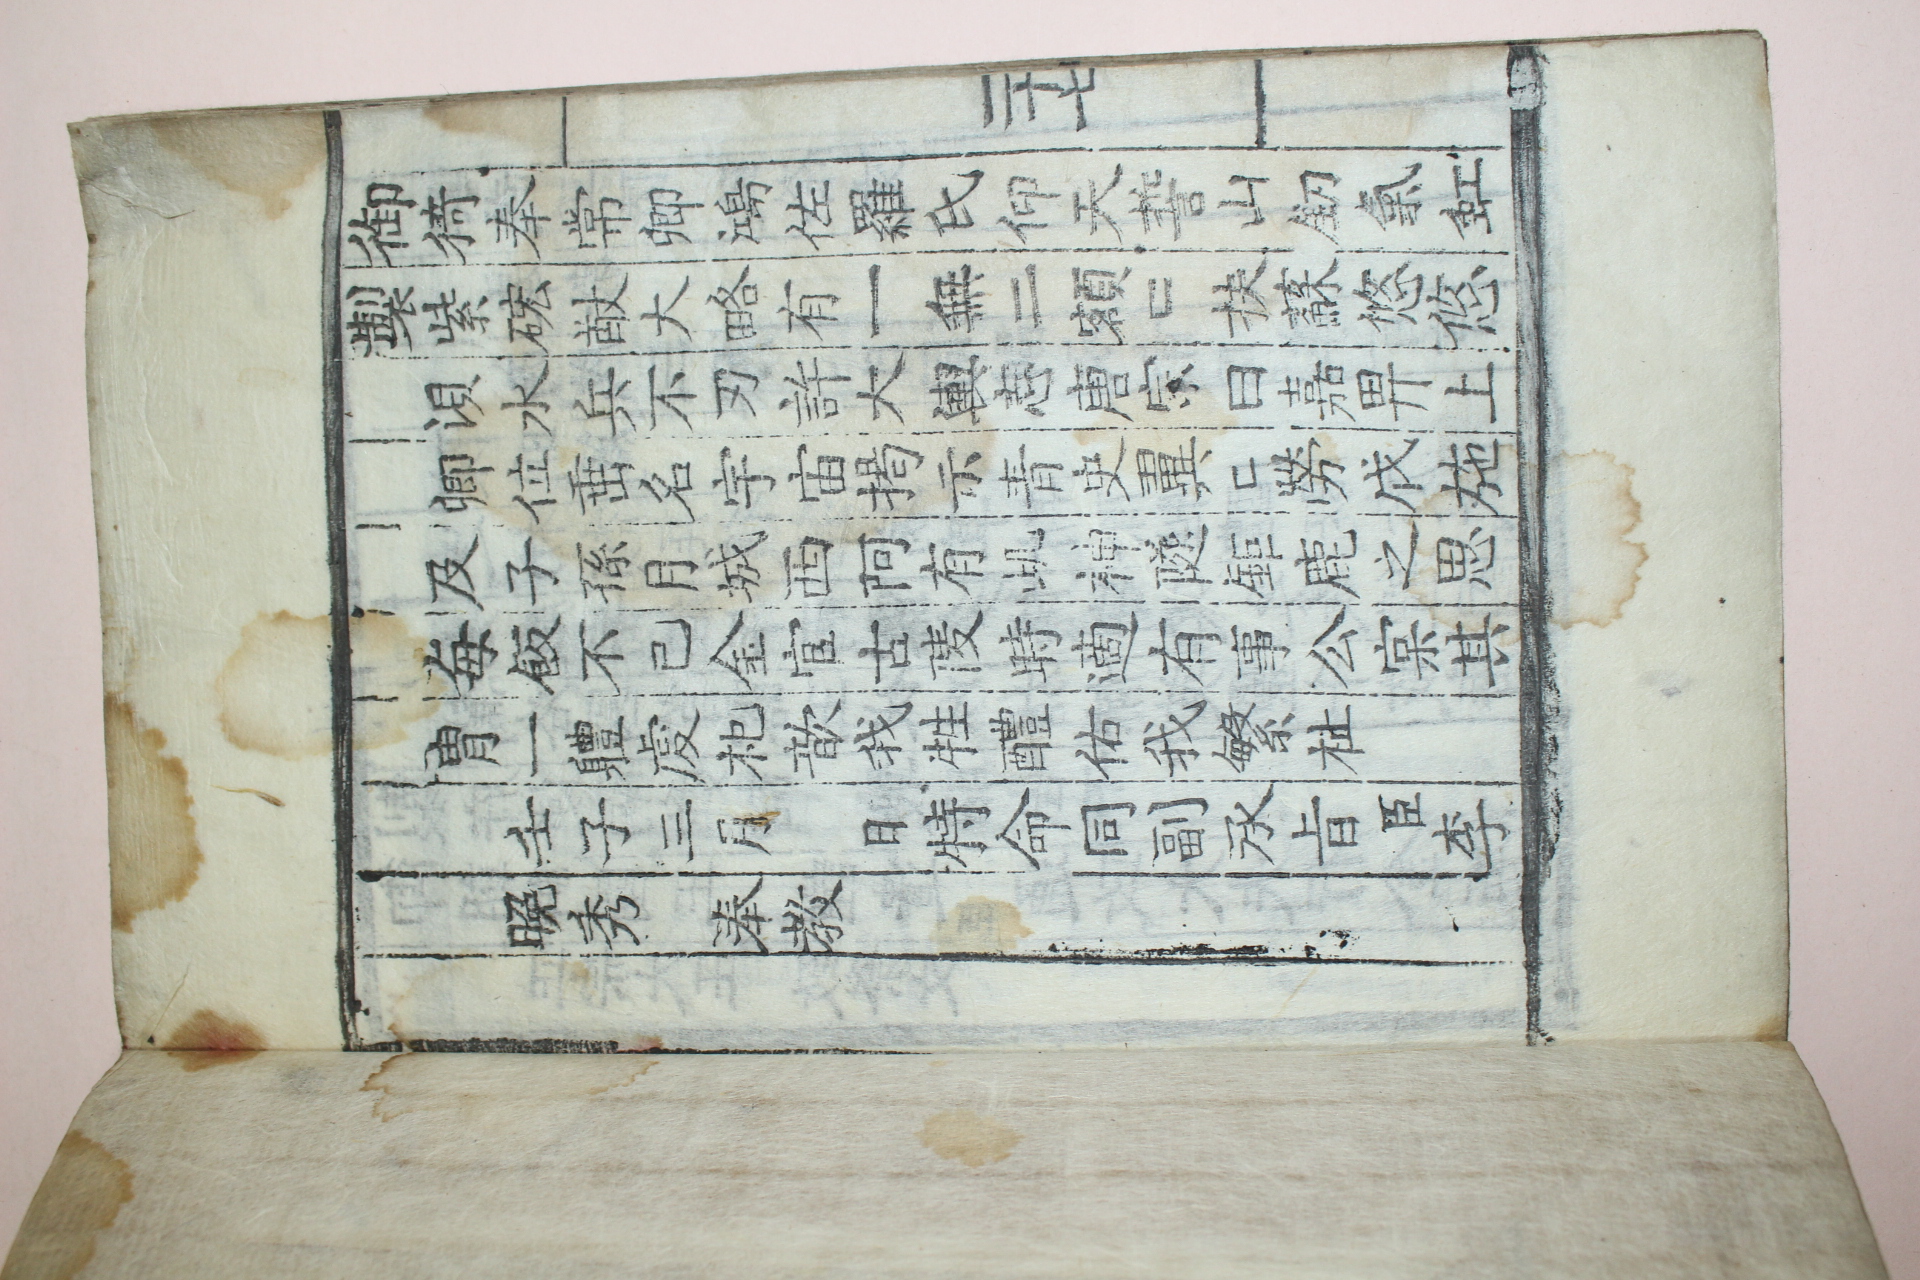 御猗奉常卿鴻佐羅氏仰天誓山釰氣虹
製紫硡猷大略有一無二額〻扶蘇悠悠
浿水兵不刃許大輿志唐宗曰嘉畀上
卿位垂名宇宙揭示青史翼〻勞伐施
及子孫月城西阿有此神隧鉅鹿之思
每飯不已金官古陵時適有事公寀其
胄一體處杞歆我牲醴佑我繁祉
壬子三月 日特命同副承旨臣李
晚秀 奉敎
二十七